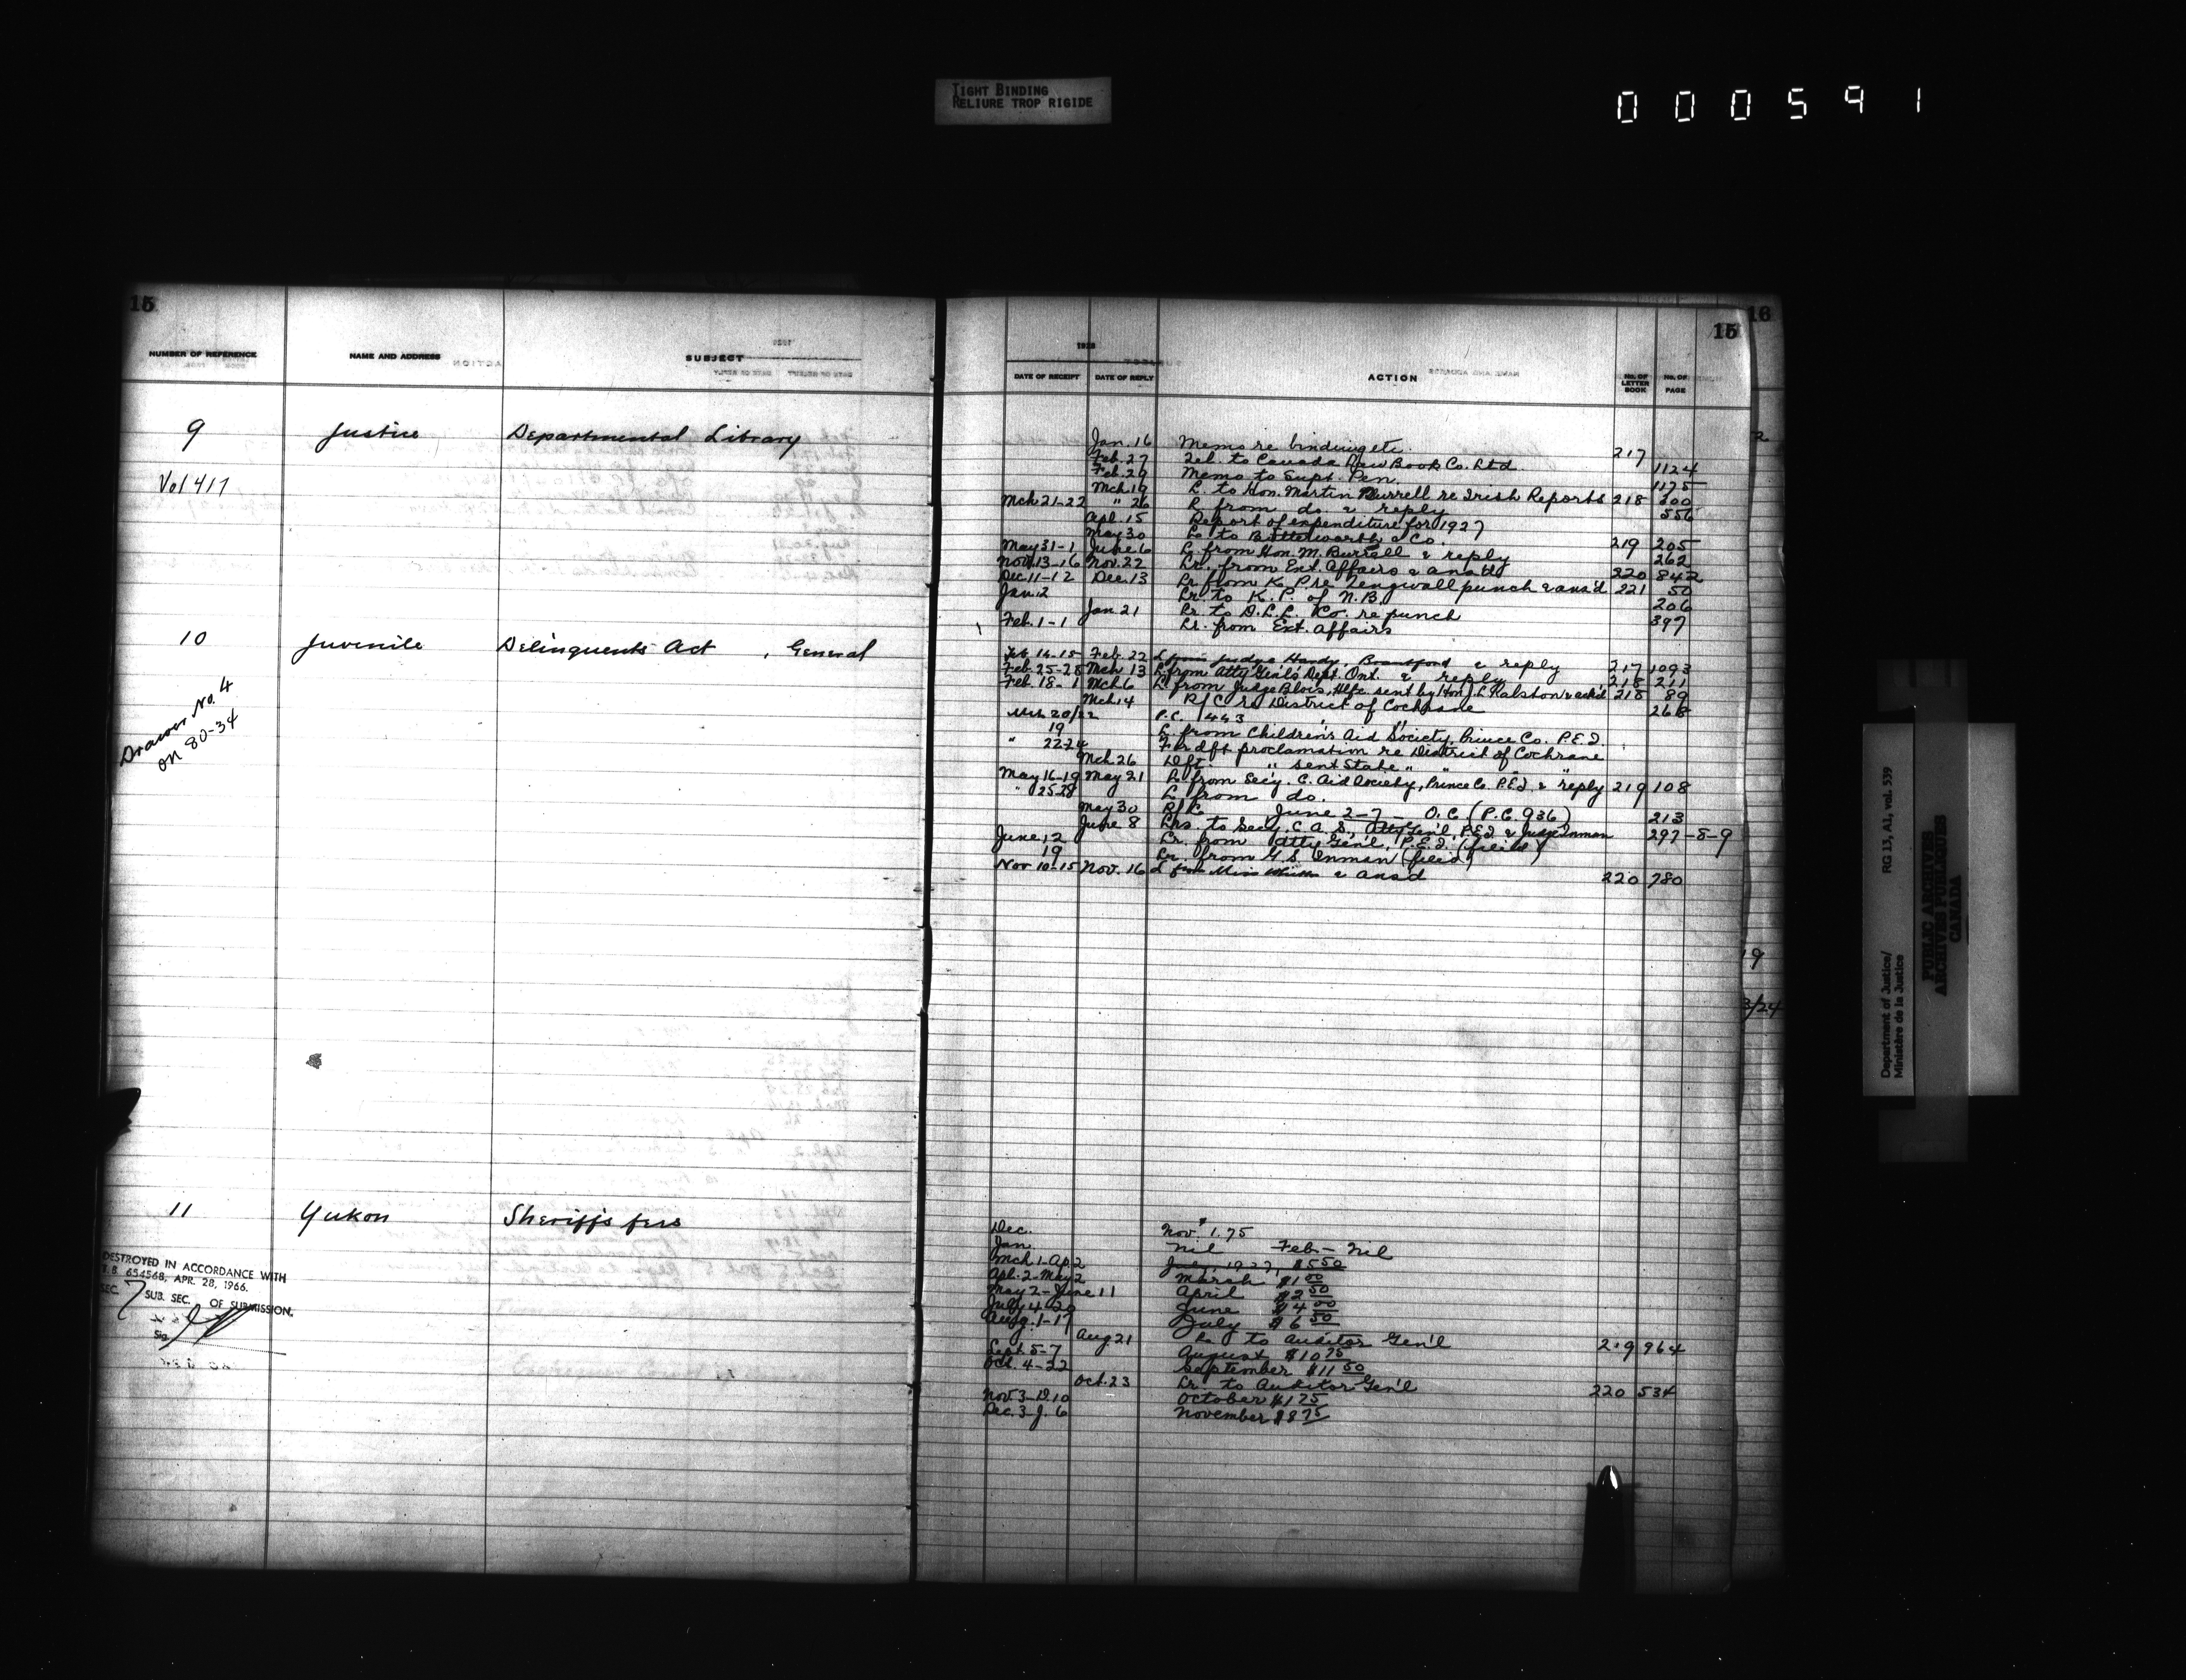 TIGHT BINDING
RELIURE TROP RIGIDE
000591
15
NUMBER OF REFERENCE NAME AND ADDRESS SUBJECT
9 Justice Departmental Library
Vol 417
10 Juvenile Delinquents Act, General
Drawer No. 4
on 80-34
11 Yukon Sheriff's fees
DESTROYED IN ACCORDANCE WITH
T.B. 654568, APR. 28, 1966.
SEC. 7 SUB. SEC. OF SUBMISSION.
Sig.
16
15
1928
DATE OF RECEIPT DATE OF REPLY ACTION No. OF LETTER BOOK No. OF PAGE
Jan. 16 Memo re binding etc. 217
Feb. 27 Tel. to Canada Law Book Co. Ltd. 1124
Feb. 29 Memo to Supt. Pen. 1175
Mch. 19 L. to Hon. Martin Burrell re Irish Reports 218 300
Mch 21-22 " 26 L. from do. & reply 556
Apl. 15 Report of expenditure for 1927
May 30 L. to Butterworth & Co. 219 205
May 31-1 June 6 L. from Hon. M. Burrell & reply 262
Nov. 13-16 Nov. 22 Lr. from Ext. Affairs & ansd 220 842
Dec. 11-12 Dec. 13 Lr from K. P. re punch & ans'd 221 50
Jan. 2 Lr. to K. P. of N.B. 206
Jan 21 Lr. to D.L.L. Co. re punch 397
Feb. 1-1 Lr. from Ext. Affairs
Feb. 14-15 Feb. 22 L from Judge Hardy, Brantford & reply 217 1093
Feb. 25-28 Mch 13 L. from Atty Gen'l's Dept. Ont. & reply 218 211
Feb. 18-1 Mch 6 L. from Judge Blois, Hlfx sent by Hon J. L Ralston & ackd 218 89
Mch 14 R/C re District of Cochrane 268
Mch 20/22 P.C. 443 " "
19 L. from Children's Aid Society, Prince Co. P.E.I.
" 22-24 F dft proclamation re District of Cochrane
Mch 26 Dft. " sent State " " "
May 16-19 May 21 L. from Sec'y. C. Aid Society, Prince Co. P.E.I & reply 219 108
" 25-28 L. from do.
May 30 R/C June 2-7 O.C. (P.C. 936) 213
June 8 Lrs to Secy. C. A. S., Atty Gen'l, P.E.I. & Judge Inman 297-8-9
June 12 Lr. from Atty Gen'l, P.E.I. (filed)
19 Lr. from G. S. Inman (filed)
Nov 10-15 Nov. 16 L from Miss & ans'd 220 780
Dec. Nov. $1.75
Jan. Nil Feb - Nil
Mch 1-Ap. 2 July, 1927, $5.50
Apl. 2-May 2 March $1.00
May 2-June 11 April $2.50
July 4-20 June $4.00
Aug. 1-17 July $6.50
Aug 21 Lr. to Auditor Gen'l 219 964
Sept. 5-7 August $10.75
Oct. 4-22 September $11.50
Oct. 23 Lr. to Auditor Gen'l 220 534
Nov. 3-D.10 October $1.75
Dec. 3-J. 6 November $8.75
2
19
3/24
Department of Justice/
Ministère de la Justice
RG 13, A1, vol. 539
PUBLIC ARCHIVES
ARCHIVES PUBLIQUES
CANADA